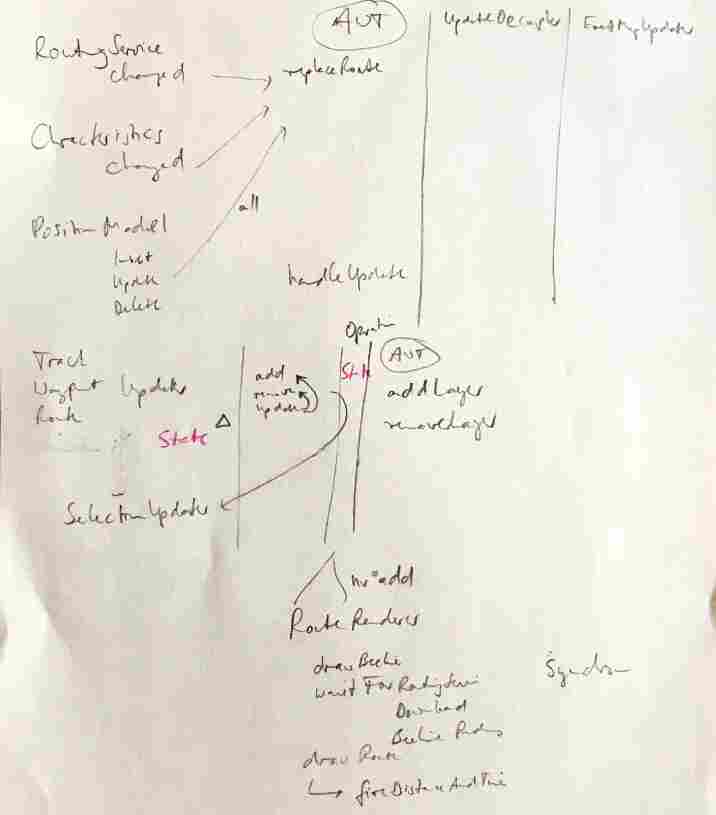 AWT
UpdateDecoupler
EventMapUpdater
RoutingService
changed
replaceRoute
Charcteristics
changed
all
PositionModel
Insert
Update
Delete
handleUpdate
Operation
Track
Waypoint Updater
Route
add
remove
update
State
AWT
addLayer
removeLayer
State
SelectionUpdater
nr*add
RouteRenderer
drawBeeline
waitForRoutingService
Download
drawRoute
fireDistanceAndTime